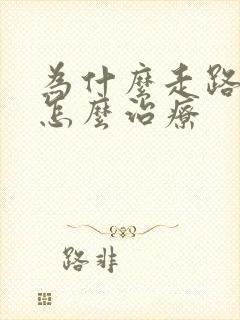 為什麼走路
怎麼治療
路非